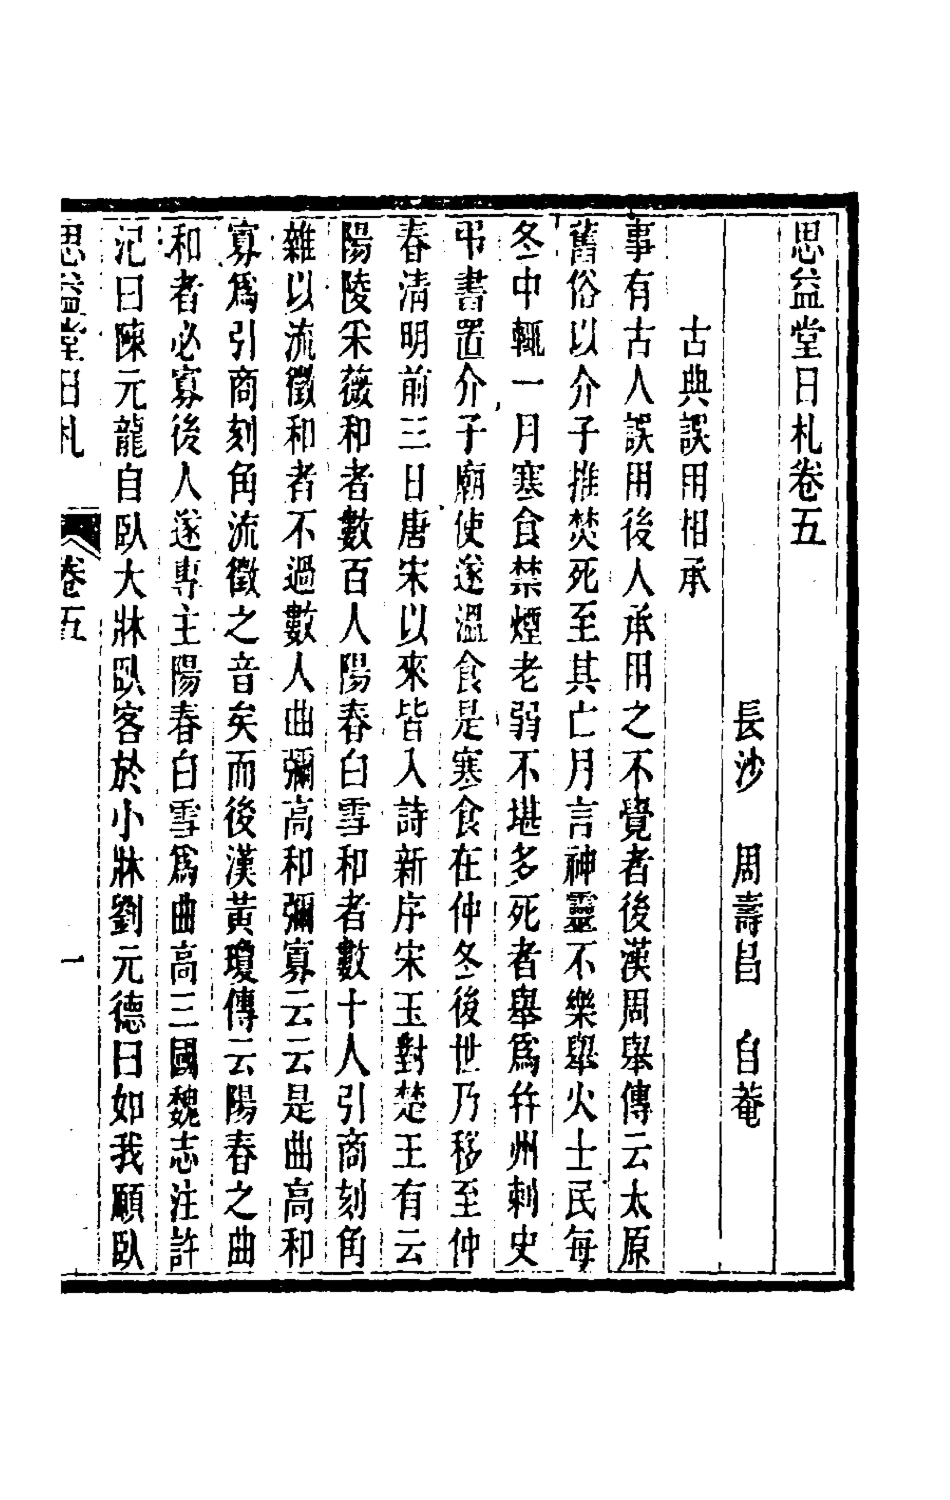 思益堂日札卷五
長沙　周壽昌　自菴
古典誤用相承
事有古人誤用後人承用之不覺者後漢周舉傳云太原
舊俗以介子推焚死至其亡月言神靈不樂舉火士民每
冬中輒一月寒食禁煙老弱不堪多死者舉爲幷州刺史
弔書置介子廟使遂溫食是寒食在仲冬後世乃移至仲
春淸明前三日唐宋以來皆入詩新序宋玉對楚王有云
陽陵采薇和者數百人陽春白雪和者數十人引商刻角
雜以流徵和者不過數人曲彌高和彌寡云云是曲高和
寡爲引商刻角流徵之音矣而後漢黃瓊傳云陽春之曲
和者必寡後人遂專主陽春白雪爲曲高三國魏志注許
汜曰陳元龍自臥大牀臥客於小牀劉元德曰如我願臥
思益堂日札　卷五　一